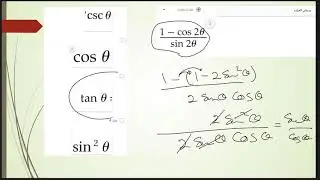 csc θ
cos θ
tan θ
sin² θ
1 − cos 2θ
sin 2θ
1 − (1 − 2 sin²θ)
2 sinθ cosθ
2 sin²θ
2 sinθ cosθ
= sinθ
cosθ